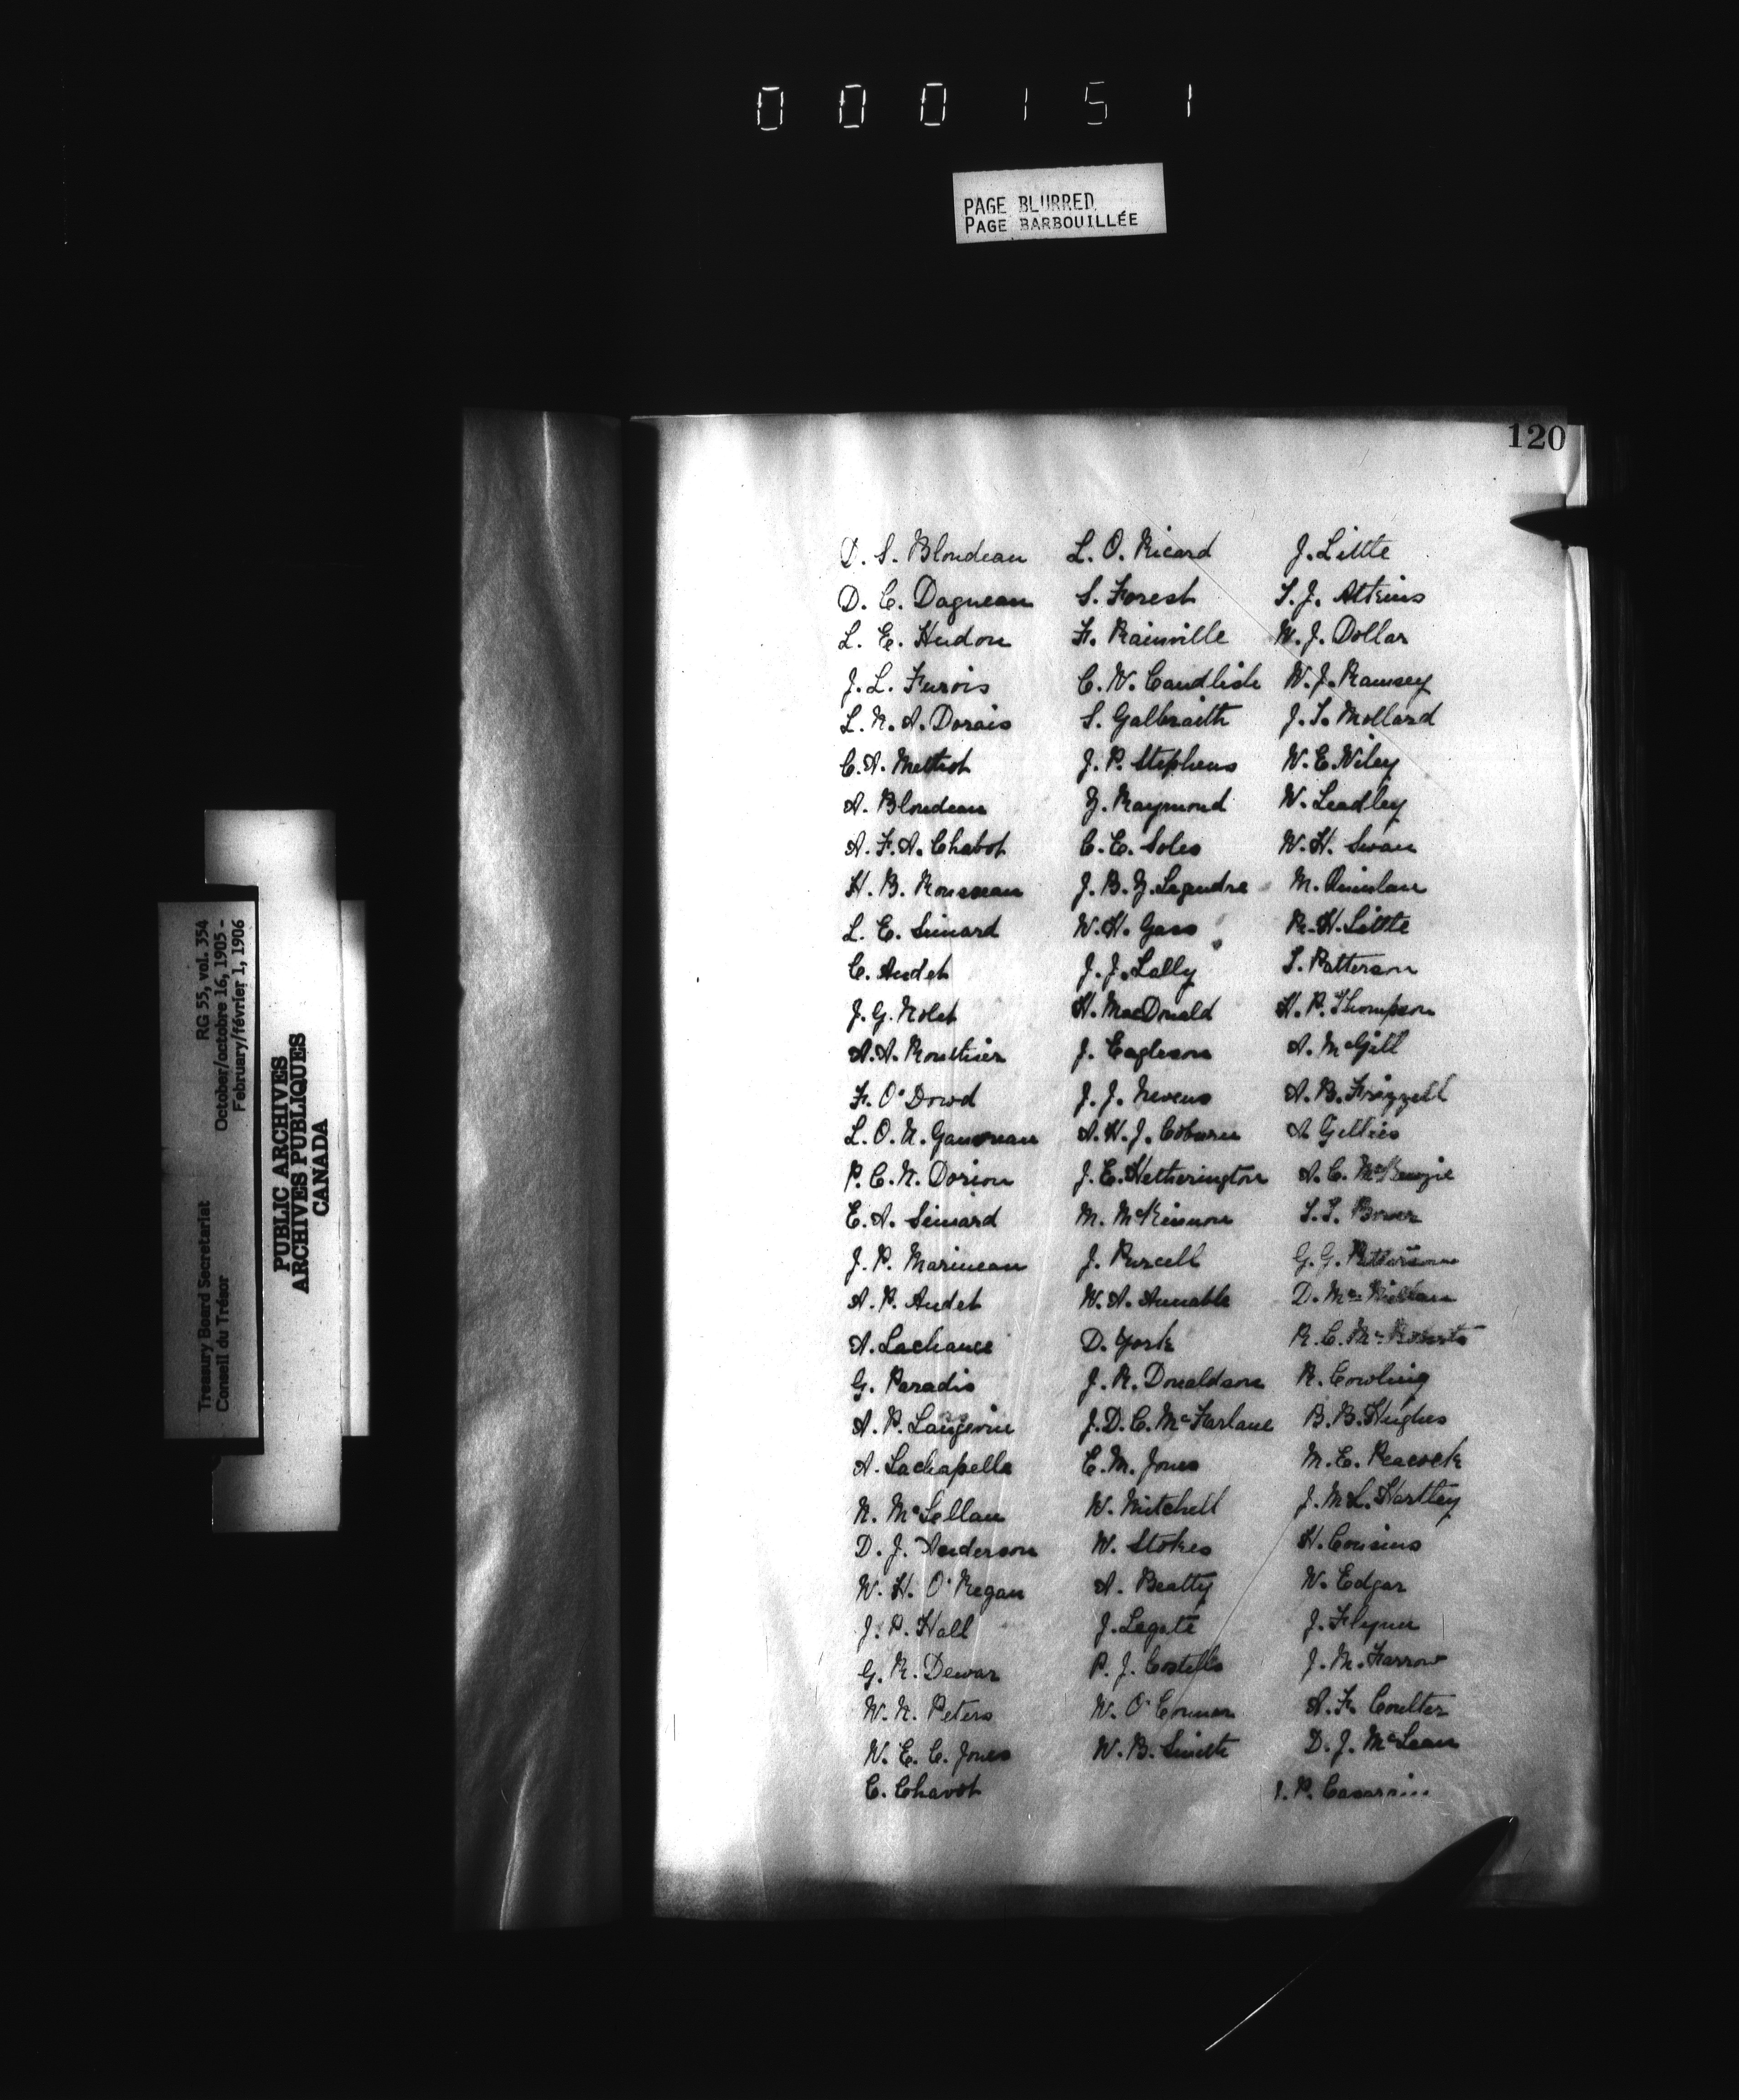 000151
PAGE BLURRED
PAGE BARBOUILLÉE
120
D. S. Blondeau L. O. Ricard J. Little
D. C. Dagneau S. Forest T. J. Atkins
L. E. Hudon F. Rainville W. J. Dollar
J. L. Furois C. W. Candlish W. J. Ramsey
L. N. A. Dorais S. Galbraith J. T. Mollard
C. A. Methot J. P. Stephens W. E. Wiley
A. Blondeau Z. Raymond W. Leadley
A. F. A. Chabot C. E. Soles W. H. Swan
H. B. Rousseau J. B. Z. Legendre M. Quinlan
L. E. Simard W. H. Gass R. H. Little
C. Audet J. J. Lally T. Patterson
J. G. Nolet H. MacDonald H. P. Thompson
A. A. Routhier J. Eagleson A. McGill
F. O'Dowd J. J. Nevens A. B. Frizzell
L. O. N. Gauvreau A. H. J. Coburn A Gillies
P. C. N. Dorion J. E. Hetherington A. C. McKenzie
E. A. Simard M. McKinnon T. T. Bower
J. P. Marineau J. Purcell G. G. Patterson
A. P. Audet W. A. Annable D. Mc
A. Lachance D. York R. C. McRoberts
G. Paradis J. R. Donaldson R. Cowling
A. P. Langevin J. D. C. McFarlane B. B. Hughes
A. Lachapelle E. M. Jones M. E. Peacock
N. McLellan W. Mitchell J. M L. Hartley
D. J. Anderson W. Stokes H. Cousins
W. H. O'Regan A. Beatty W. Edgar
J. P. Hall J. Legate J. Flynn
G. R. Dewar P. J. Costello J. M. Farrow
W. N. Peters W. O'Connor A. F. Coulter
W. E. C. Jones W. B. Smith D. J. McLean
C. Chavot P.
Treasury Board Secretariat RG 55, vol. 354
Conseil du Trésor October/octobre 16, 1905 -
February/février 1, 1906
PUBLIC ARCHIVES
ARCHIVES PUBLIQUES
CANADA